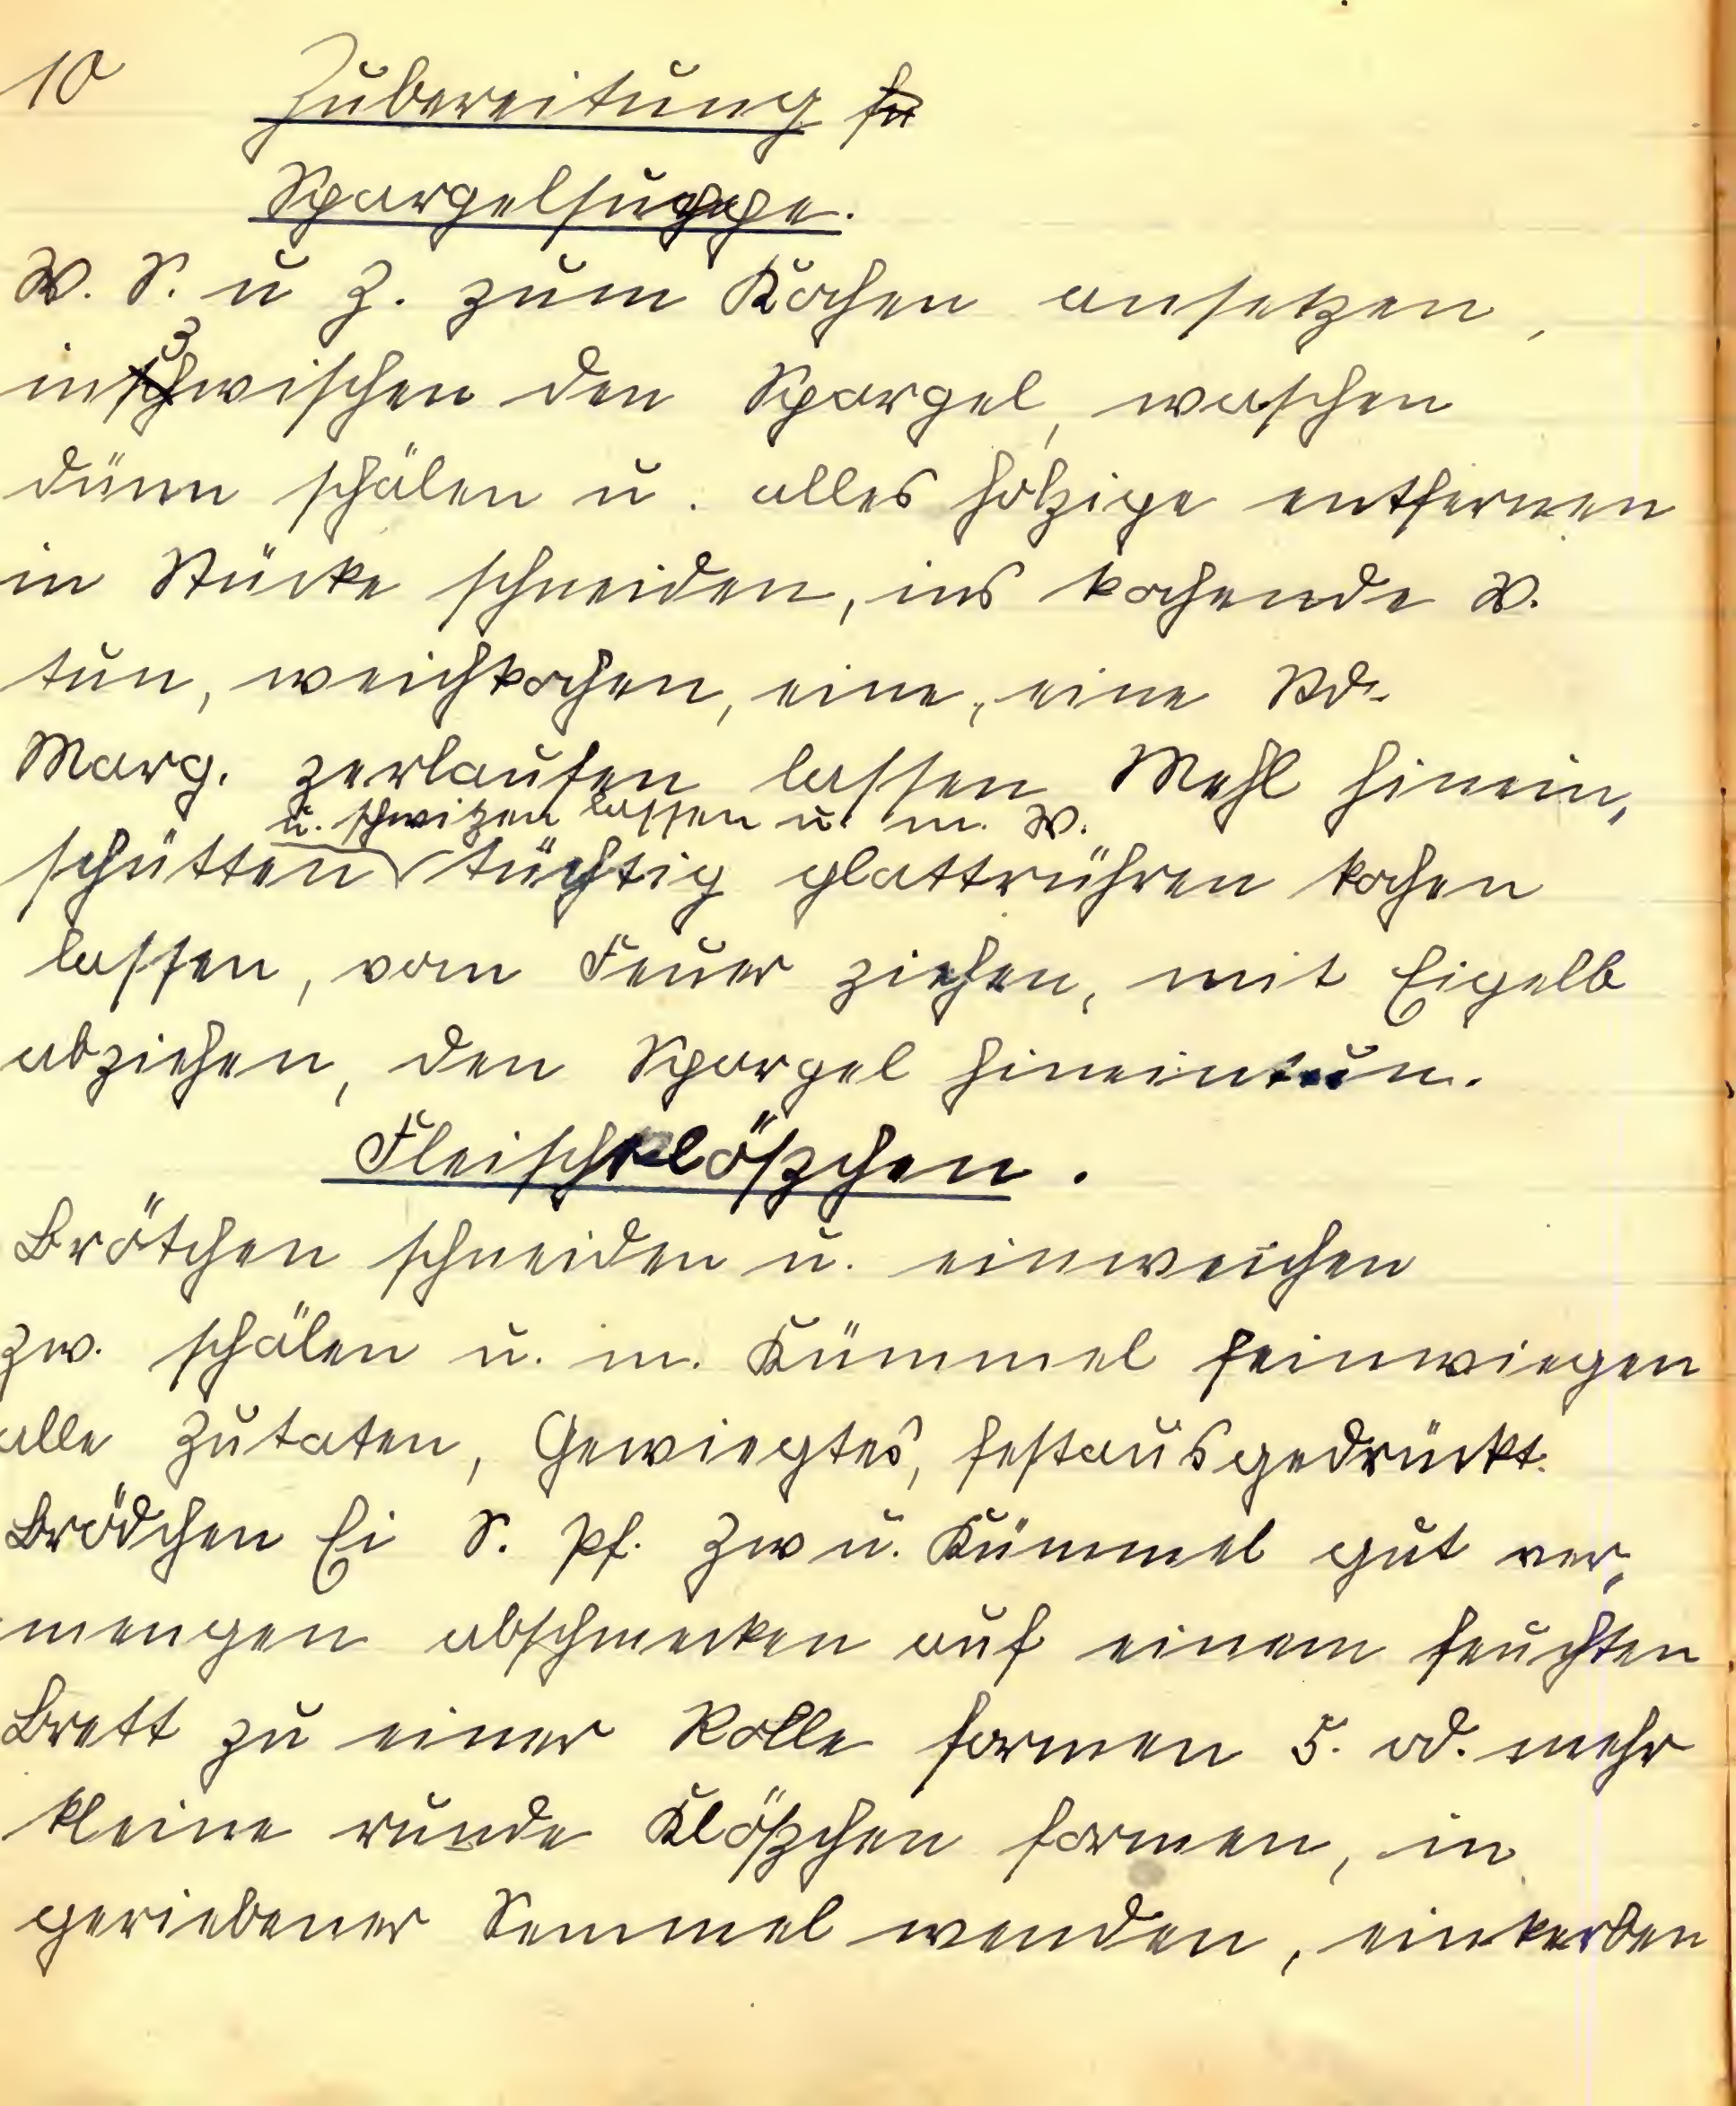 10 Zubereitung
Spargelsuppe.
W. S. u Z. zum Kochen ansetzen,
inzwischen den Spargel, waschen
dünn schälen u. alles holzige entfernen
in Stücke schneiden, ins kochende W.
tun, weichkochen, eine, eine
Marg. zerlaufen lassen Mehl hinein,
u. schwitzen lassen u. m. W.
schütten tüchtig glattrühren kochen
lassen, vom Feuer ziehen, mit Eigelb
abziehen, den Spargel hineintun.
Fleischklößchen.
Brötchen schneiden u. einweichen
Zw. schälen u. m. Kümmel feinwiegen
alle Zutaten, Gewiegtes, festausgedrückt.
Brödchen Ei S. Pf. Zw u. Kümmel gut ver,
mengen abschmecken auf einem feuchten
Brett zu einer Rolle formen 5. od. mehr
kleine runde Klößchen formen, in
geriebener Semmel wenden, einkerben